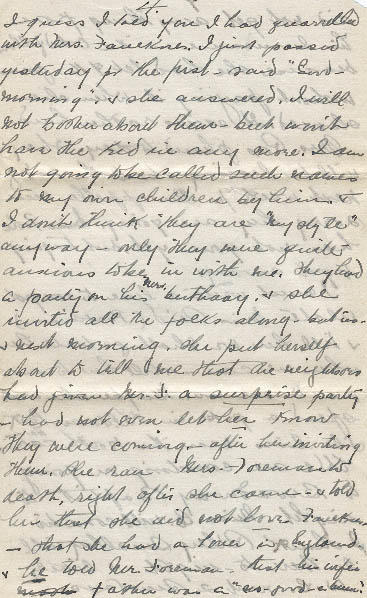 4.
I guess I told you I had quarrelled
with Mrs. Faulkner. I just passed
yesterday for the first - said "Good-
morning", & she answered. I will
not bother about them - but won't
have the kid in any more. I am
not going to be called such names
to my own children by him. &
I don't think they are "my style"
anyway - only they were quite
anxious to be in with me. They had
a party on his birthday. & she
invited all the folks along - but us -
& next morning. she put herself
about to tell me that the neighbors
had given Mr. F. a surprise party
- had not even let her know
they were coming - after her inviting
them. She ran Mrs. Foreman to
death, right after she came - & told
her that she did not love Faulkner
- that she had a lover in England.
& he told Mr. Foreman - that his wife's
father was a "no-good